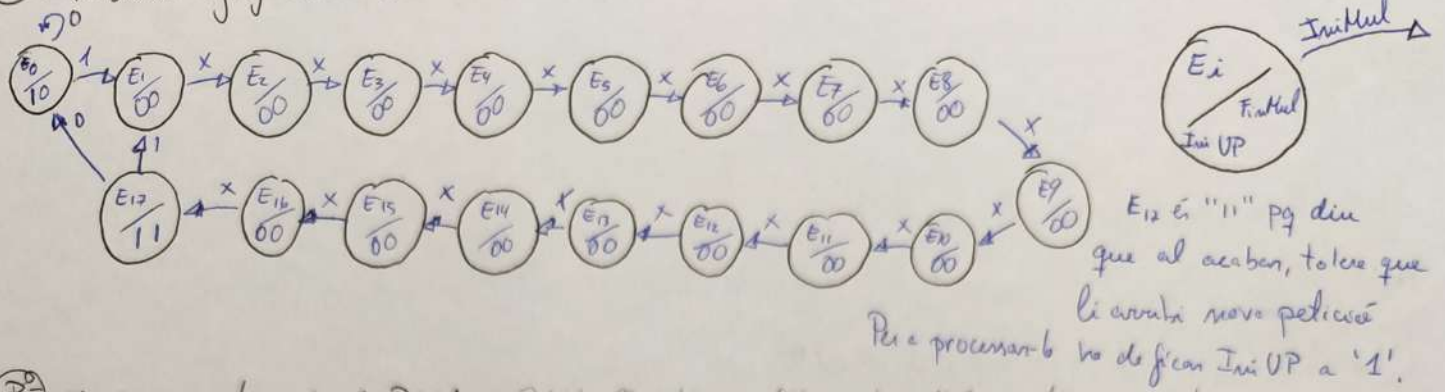 0
E0/10 1 E1/00 x E2/00 x E3/00 x E4/00 x E5/00 x E6/00 x E7/00 x E8/00
x
0 1
E17/11 x E16/00 x E15/00 x E14/00 x E13/00 x E12/00 x E11/00 x E10/00 x E9/00
IniMul
Ei
FinMul
Ini UP
és "11" pq diu
que al acaban, tolera que
li arribi nova petició
Per a ha de ficar Ini UP a '1'.